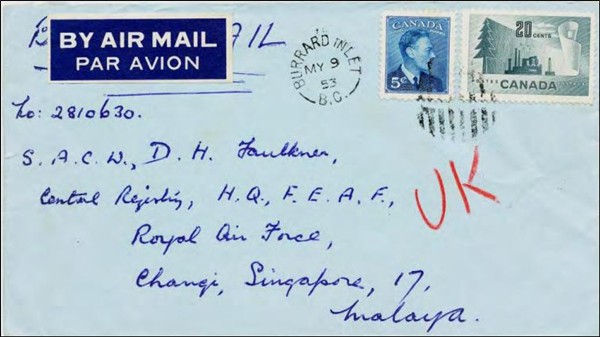 BY AIR MAIL
PAR AVION
BURRARD INLET
MY 9
53
B.C.
CANADA
5c
20
CENTS
POSTES
CANADA
to: 2810630.
S.A.C.W., D. H. Faulkner,
Central Registry, H.Q., F.E.A.F.,
UK
Royal Air Force,
Changi, Singapore, 17,
Malaya.